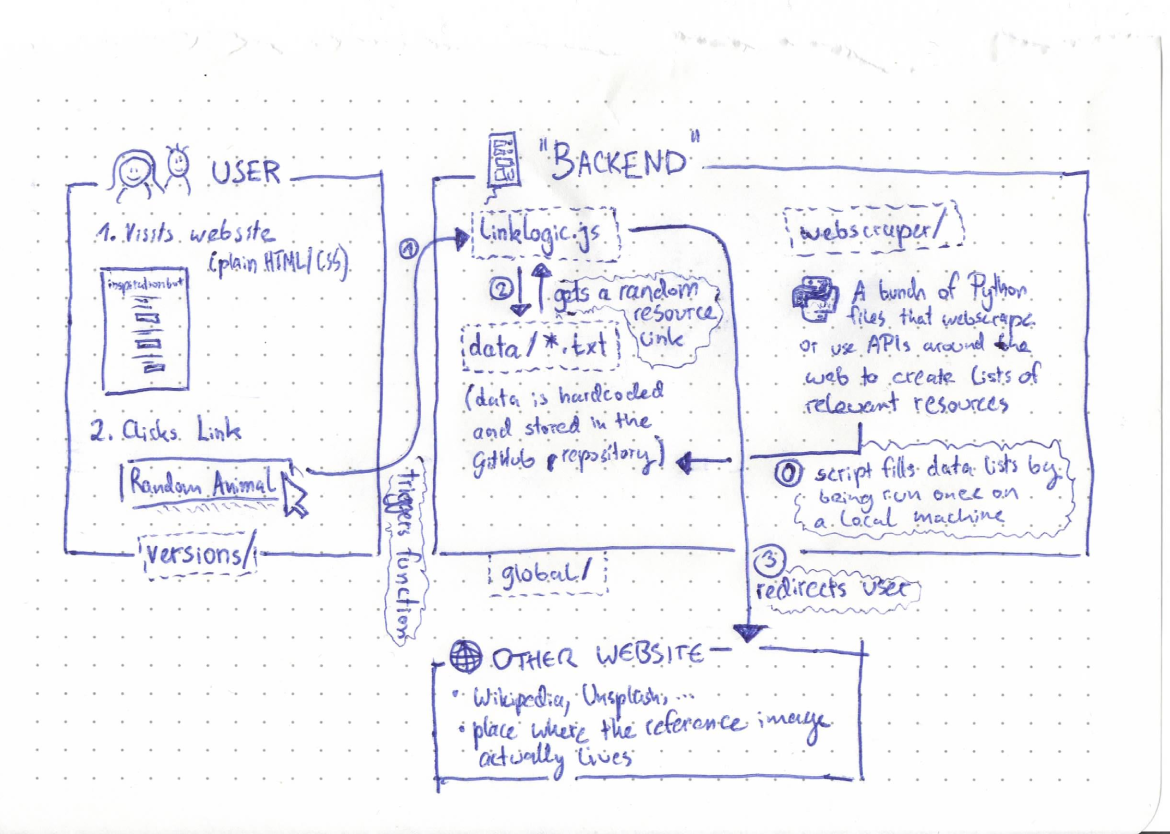 USER
1. Visits website
(plain HTML/CSS)
inspirationbot
2. Clicks Link
Random Animal
versions/
①
triggers function
"BACKEND"
linklogic.js
②
gets a random
resource
link
data/*.txt
(data is hardcoded
and stored in the
GitHub repository)
webscraper/
A bunch of Python
files that webscrape
or use APIs around the
web to create lists of
relevant resources
⓪ script fills data lists by
being run once on
a local machine
global/
③
redirects user
OTHER WEBSITE
• Wikipedia, Unsplash, ...
• place where the reference image
actually lives